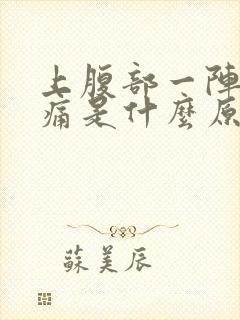 上腹部一陣
痛是什麼原
蘇美辰